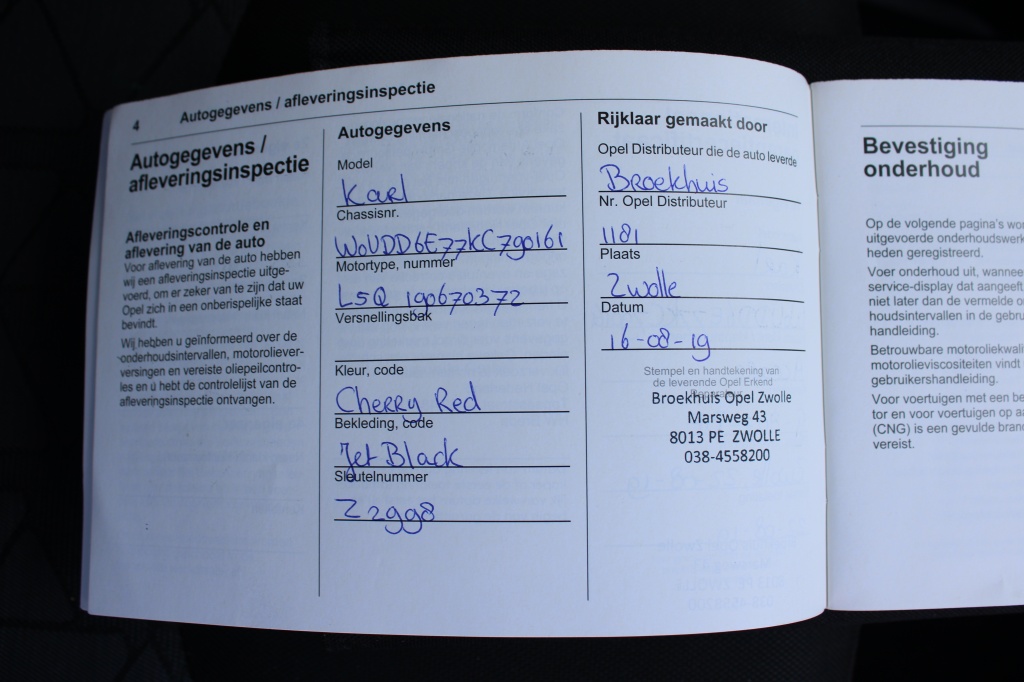 4 Autogegevens / afleveringsinspectie
Autogegevens /
afleveringsinspectie
Afleveringscontrole en
aflevering van de auto
Voor aflevering van de auto hebben
wij een afleveringsinspectie uitge-
voerd, om er zeker van te zijn dat uw
Opel zich in een onberispelijke staat
bevindt.
Wij hebben u geïnformeerd over de
onderhoudsintervallen, motoroliever-
versingen en vereiste oliepeilcontro-
les en u hebt de controlelijst van de
afleveringsinspectie ontvangen.
Autogegevens
Model
Karl
Chassisnr.
W0VDD6E77KC790161
Motortype, nummer
L5Q 190670372
Versnellingsbak
Kleur, code
Cherry Red
Bekleding, code
Jet Black
Sleutelnummer
Z2998
Rijklaar gemaakt door
Opel Distributeur die de auto leverde
Broekhuis
Nr. Opel Distributeur
1181
Plaats
Zwolle
Datum
16-08-19
Stempel en handtekening van
de leverende Opel Erkend
Broekhuis Opel Zwolle
Marsweg 43
8013 PE ZWOLLE
038-4558200
Bevestiging
onderhoud
Op de volgende pagina's
uitgevoerde
heden geregistreerd.
Voer onderhoud uit,
service-display dat aangeeft,
niet later dan de vermelde
houdsintervallen in de
handleiding.
Betrouwbare
motorolieviscositeiten vindt
gebruikershandleiding.
Voor voertuigen met een
tor en voor voertuigen op
(CNG) is een gevulde
vereist.